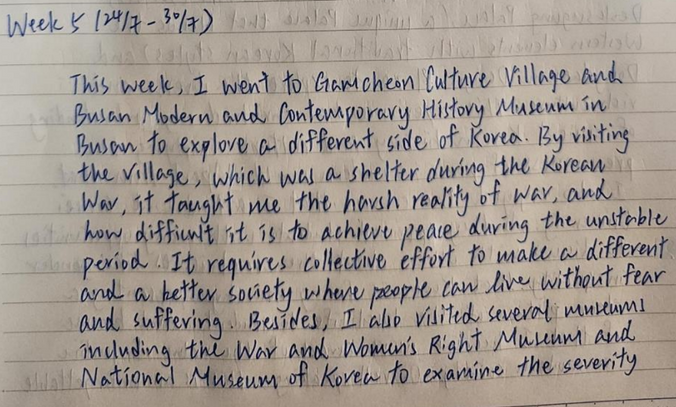 Week 5 (24/7 - 30/7)
This week, I went to Gamcheon Culture Village and
Busan Modern and Contemporary History Museum in
Busan to explore a different side of Korea. By visiting
the village, which was a shelter during the Korean
War, it taught me the harsh reality of war, and
how difficult it is to achieve peace during the unstable
period. It requires collective effort to make a different
and a better society where people can live without fear
and suffering. Besides, I also visited several museums
including the War and Women's Right Museum and
National Museum of Korea to examine the severity